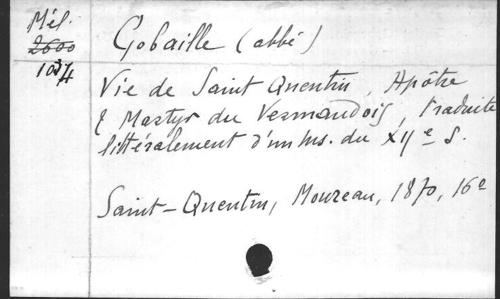 Mél.
2600
1074
Gobaille (abbé)
Vie de Saint Quentin, Apôtre
& Martyr du Vermandois, traduite
littéralement d'un ms. du XIIe s.
Saint-Quentin, Moureau, 1870, 16o